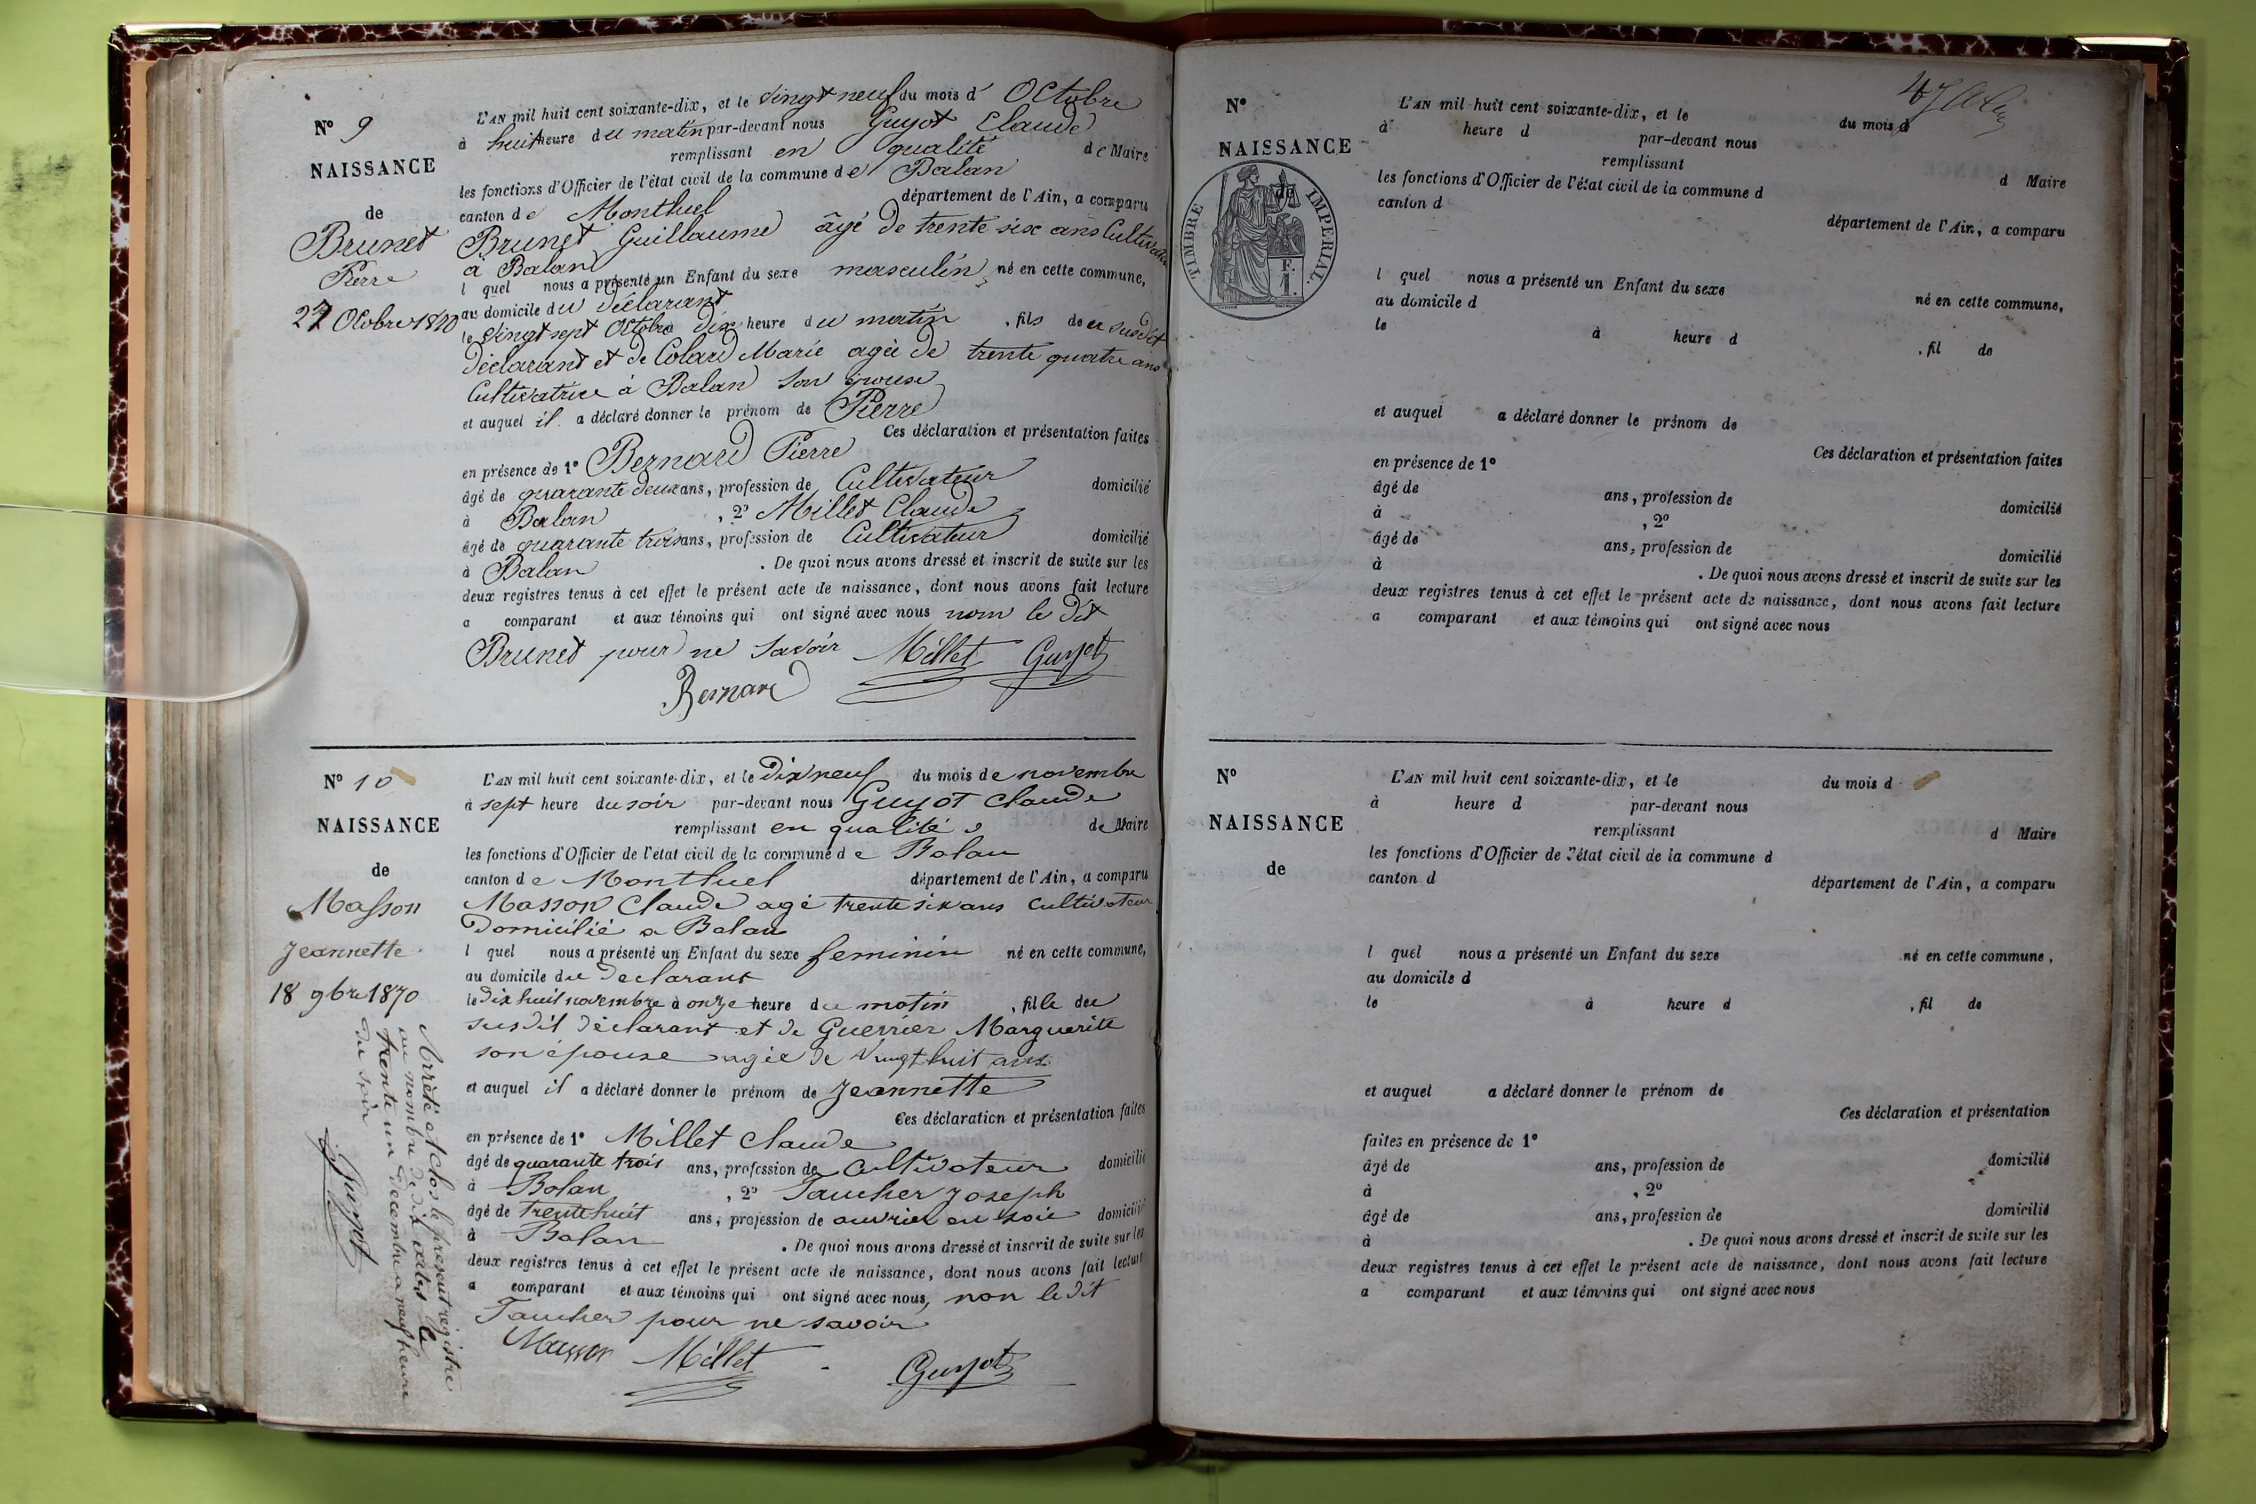 N° 9
NAISSANCE
de
Brunet
Pierre
27 Octobre 1870
L'AN mil huit cent soixante-dix, et le vingt neuf du mois d' Octobre
à huit heure du matin par-devant nous Guyot Claude
remplissant en qualité de Maire
les fonctions d'Officier de l'état civil de la commune de Balan
canton de Montluel département de l'Ain, a comparu
Brunet Guillaume âgé de trente six ans Cultivateur
à Balan
l quel nous a présenté un Enfant du sexe masculin, né en cette commune,
au domicile du déclarant
le vingt sept Octobre dix heure du matin , fils de du susdit
déclarant et de Colard Marie agée de trente quatre ans
Cultivatrice à Balan son épouse
et auquel il a déclaré donner le prénom de Pierre
Ces déclaration et présentation faites
en présence de 1° Bernard Pierre
âgé de quarante deux ans, profession de Cultivateur domicilié
à Balan , 2° Millet Claude
âgé de quarante trois ans, profession de Cultivateur domicilié
à Balan . De quoi nous avons dressé et inscrit de suite sur les
deux registres tenus à cet effet le présent acte de naissance, dont nous avons fait lecture
a comparant et aux témoins qui ont signé avec nous non le dit
Brunet pour ne savoir Millet Guyot
Bernard
N° 10
NAISSANCE
de
Masson
Jeannette
18 9bre 1870
L'AN mil huit cent soixante-dix, et le Dix neuf du mois de novembre
à sept heure du soir par-devant nous Guyot Claude
remplissant en qualité de Maire
les fonctions d'Officier de l'état civil de la commune de Balan
canton de Montluel département de l'Ain, a comparu
Masson Claude agé trente six ans cultivateur
Domicilié a Balan
l quel nous a présenté un Enfant du sexe feminin né en cette commune,
au domicile du declarant
le Dix huit novembre à onze heure du matin , fille du
susdit déclarant et de Guerrier Marguerite
son épouse agée de vingt huit ans
et auquel il a déclaré donner le prénom de Jeannette
Ces déclaration et présentation faites
en présence de 1° Millet Claude
âgé de quarante trois ans, profession de cultivateur domicilié
à Balan , 2° Taucher Joseph
âgé de trente huit ans, profession de ouvrier en soie domicilié
à Balan . De quoi nous avons dressé et inscrit de suite sur les
deux registres tenus à cet effet le présent acte de naissance, dont nous avons fait lecture
a comparant et aux témoins qui ont signé avec nous, non le dit
Taucher pour ne savoir
Masson Millet Guyot
Arrêté et clos le present registre
au nombre de dix actes le
trente un Decembre a neuf heure
du soir
Guyot
47
N°
NAISSANCE
de
TIMBRE IMPERIAL.
1 F.
L'AN mil huit cent soixante-dix, et le du mois d
à heure d par-devant nous
remplissant d Maire
les fonctions d'Officier de l'état civil de la commune d
canton d département de l'Ain, a comparu
l quel nous a présenté un Enfant du sexe né en cette commune,
au domicile d
le à heure d , fil de
et auquel a déclaré donner le prénom de
Ces déclaration et présentation faites
en présence de 1°
âgé de ans, profession de domicilié
à , 2°
âgé de ans, profession de domicilié
à . De quoi nous avons dressé et inscrit de suite sur les
deux registres tenus à cet effet le présent acte de naissance, dont nous avons fait lecture
a comparant et aux témoins qui ont signé avec nous
N°
NAISSANCE
de
L'AN mil huit cent soixante-dix, et le du mois d
à heure d par-devant nous
remplissant d Maire
les fonctions d'Officier de l'état civil de la commune d
canton d département de l'Ain, a comparu
l quel nous a présenté un Enfant du sexe né en cette commune,
au domicile d
le à heure d , fil de
et auquel a déclaré donner le prénom de
Ces déclaration et présentation
faites en présence de 1°
âgé de ans, profession de domicilié
à , 2°
âgé de ans, profession de domicilié
à . De quoi nous avons dressé et inscrit de suite sur les
deux registres tenus à cet effet le présent acte de naissance, dont nous avons fait lecture
a comparant et aux témoins qui ont signé avec nous